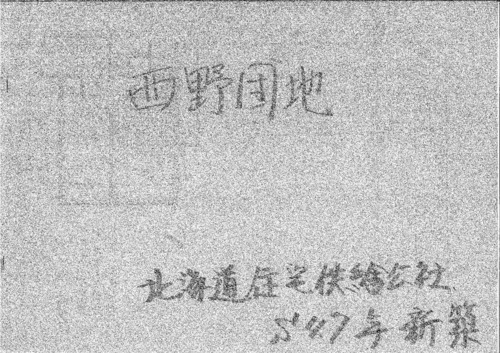 西野団地
北海道住宅供給公社
S47年新築